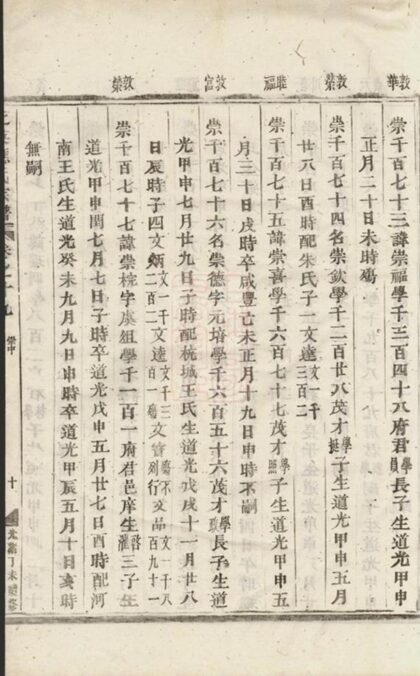 敦華
崇千百七十三諱崇福學千三百四十八府君學員長子生道光甲申
正月二十日未時殤
敦榮
崇千百七十四名崇欽學千二百廿八茂才學挺子生道光甲申五月
廿八日酉時配朱氏子一文逵文一千三百二
睢福
崇千百七十五諱崇喜學千六百七十七茂才學照子生道光甲申五
月三十日戌時卒咸豐己未正月十九日申時不嗣
敦宮
崇千百七十六名崇德字元培學千六百五十六茂才學長子生道
光甲申七月廿九日子時配杭城王氏生道光戊戌十一月廿八
日辰時子四文炳文一千二百二文達文一千三百一殤文管殤不列行文品文一千八百九十一
敦榮
崇千百七十七諱崇檢字虞組學千一百一府君邑庠生啓灌三子生
道光甲申閏七月七日子時卒道光戊申五月廿七日酉時配河
南王氏生道光癸未九月九日申時卒道光甲辰五月十日亥時
無嗣
崇中
十
光緒丁未續修